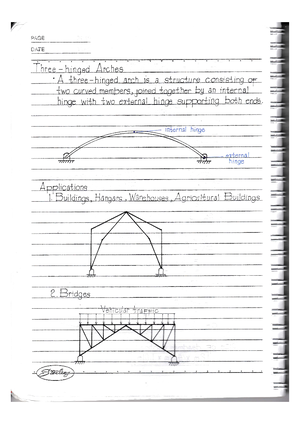 PAGE
DATE
Three-hinged Arches
• A three-hinged arch is a structure consisting of
two curved members, joined together by an internal
hinge with two external hinge supporting both ends.
internal hinge
external
hinge
Applications
1. Buildings, Hangars, Warehouses, Agricultural Buildings
2. Bridges
Vehicular traffic